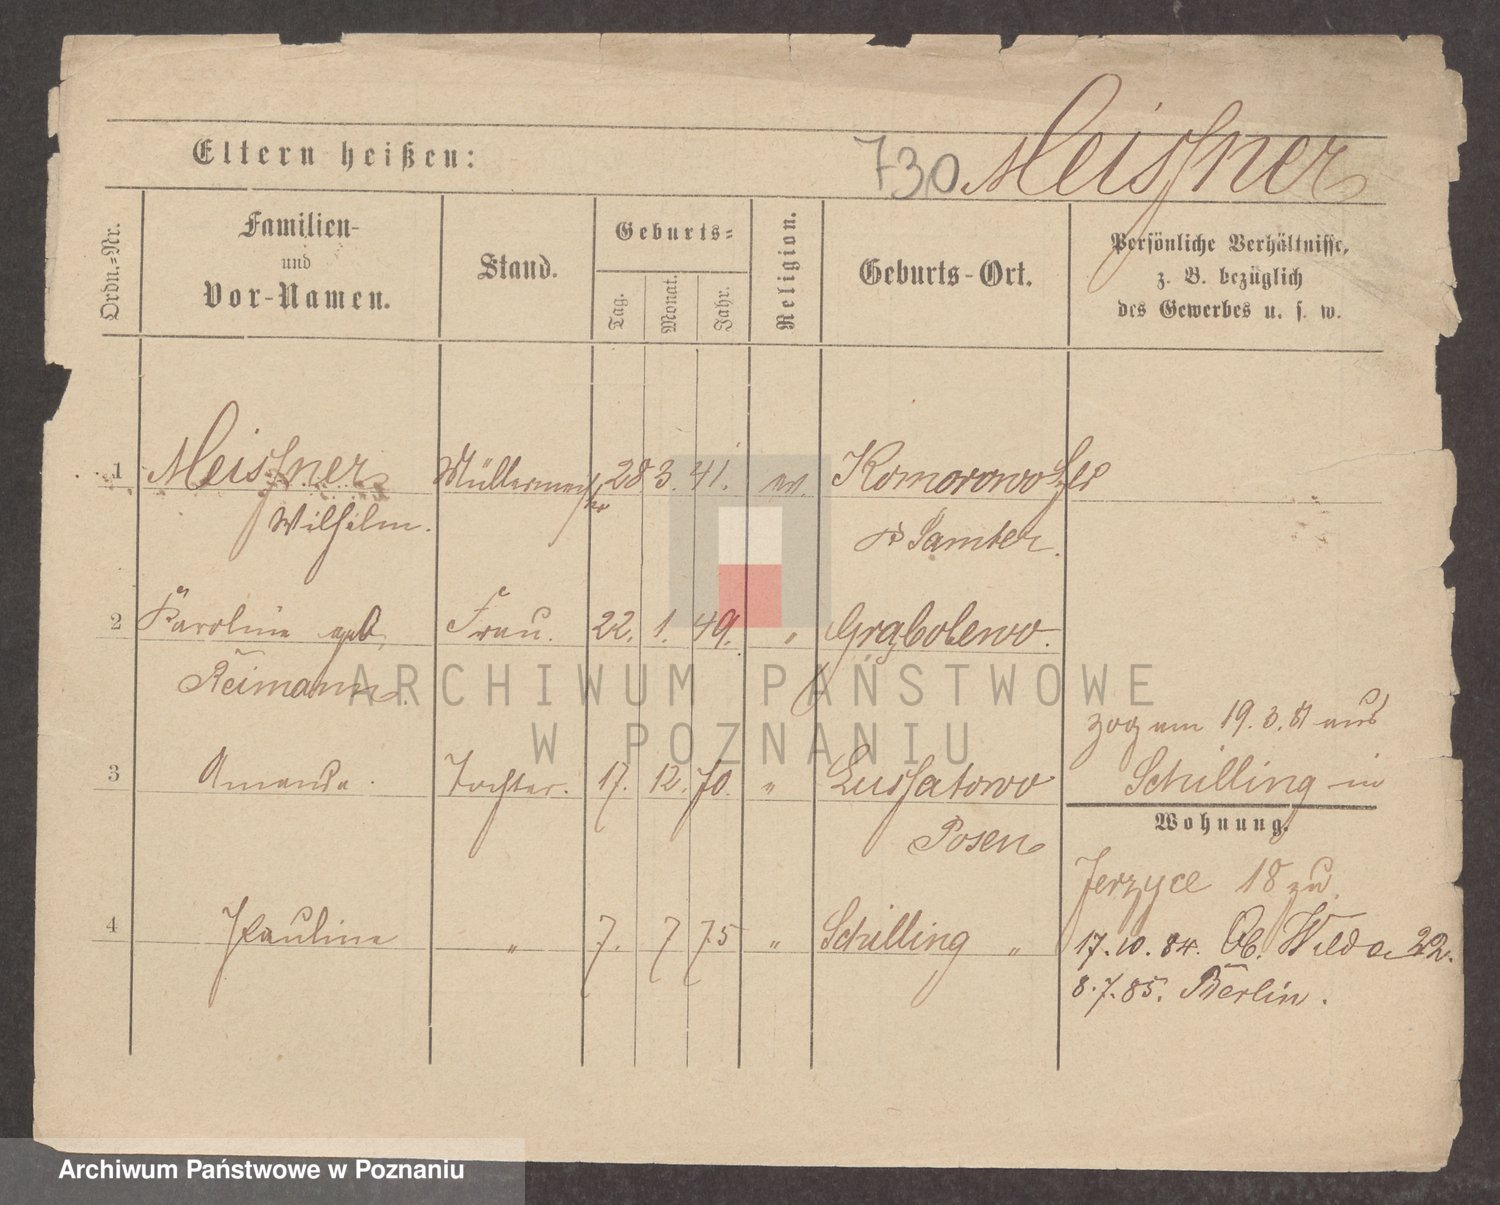 Eltern heißen:
730 Meissner
Ordn.-Nr.
Familien-
und
Vor-Namen.
Stand.
Geburts-
Tag.
Monat.
Jahr.
Religion.
Geburts-Ort.
Persönliche Verhältnisse,
z. B. bezüglich
des Gewerbes u. s. w.
1 Meissner Müllermeister 28 3. 41. ev. Komorowo
Wilhelm. Samter.
2 Karoline geb. Frau. 22. 1. 49. „
Reimann.
zog am 19. 3. 81 aus
3 Amanda. Tochter. 17. 12. 70. „ Lussatowo
Schilling in
Posen
Wohnung.
Jerzyce 18 zu
4 Pauline „ 7. 7 75 „ Schilling „
17. 10. 84. Ob. Wilda 22.
8. 7. 85. Berlin.
ARCHIWUM PAŃSTWOWE
W POZNANIU
Archiwum Państwowe w Poznaniu